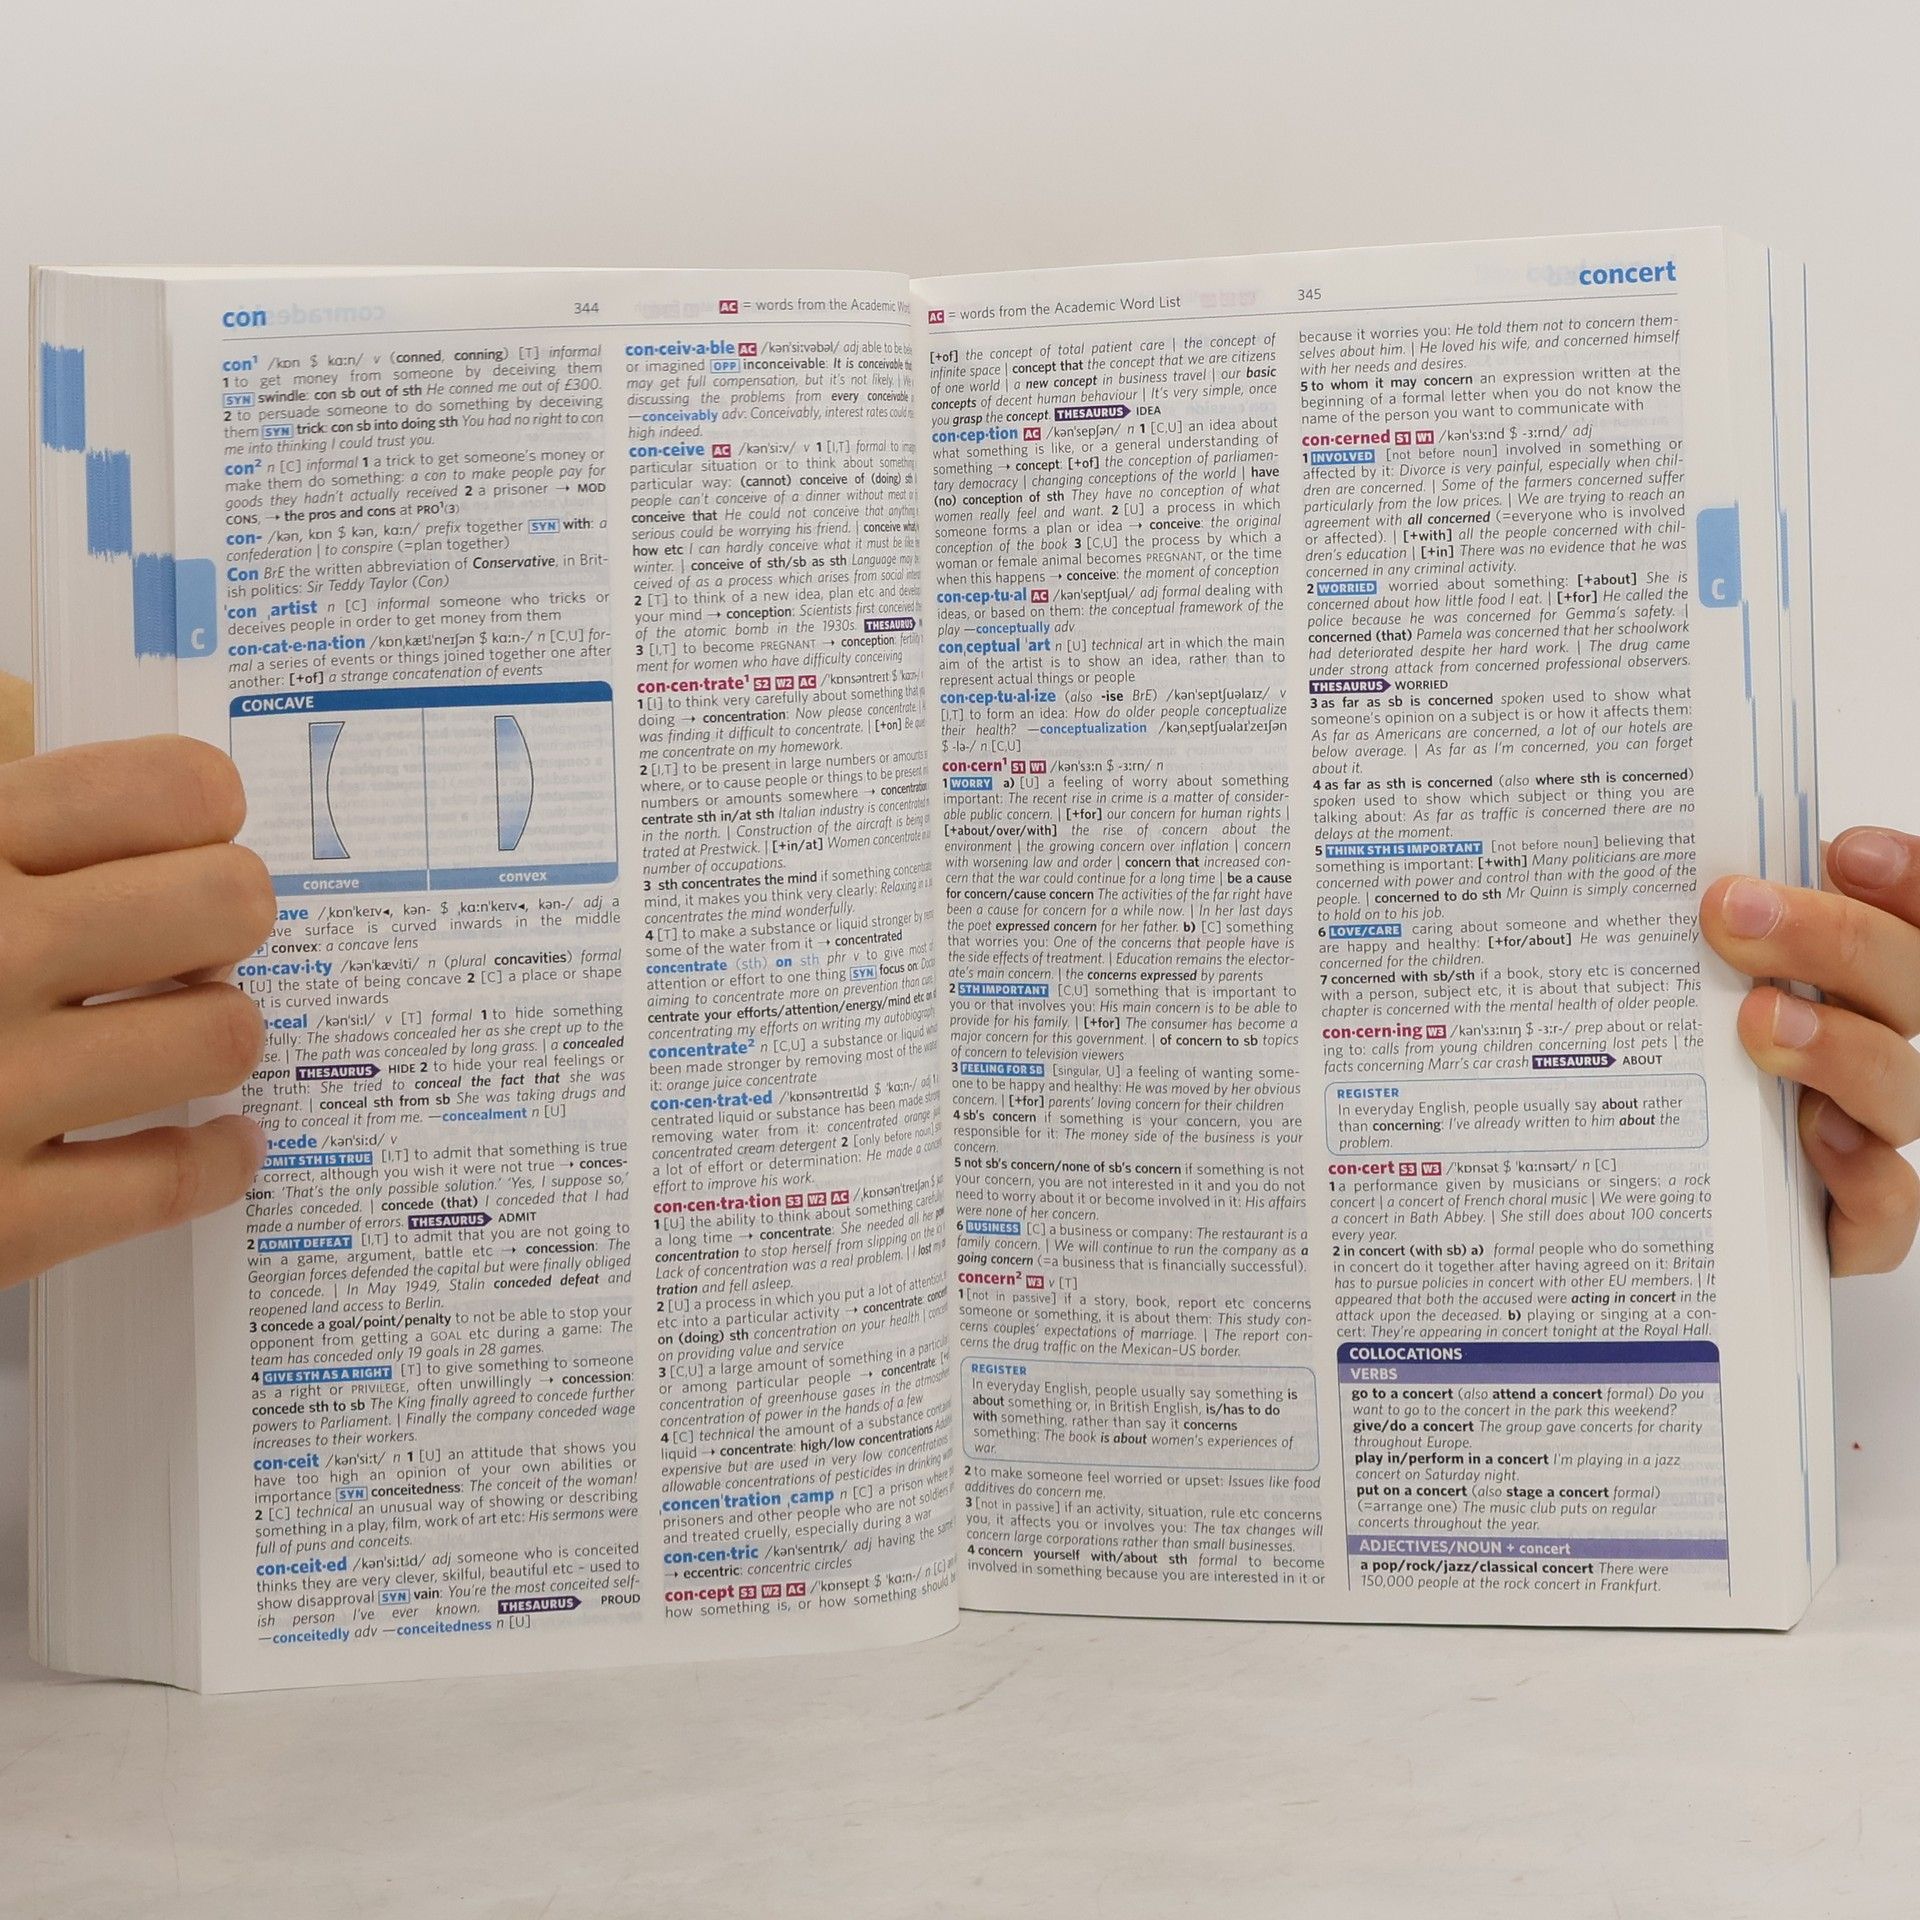 con
344
AC = words from the Academic
con¹ /kɒn $ kɑːn/ v (conned, conning) [T] informal
1 to get money from someone by deceiving them
SYN swindle: con sb out of sth He conned me out of £300.
2 to persuade someone to do something by deceiving
them SYN trick: con sb into doing sth You had no right to con
me into thinking I could trust you.
con² n [C] informal 1 a trick to get someone's money or
make them do something: a con to make people pay for
goods they hadn't actually received 2 a prisoner → MOD
CONS, → the pros and cons at PRO¹(3)
con- /kən, kɒn $ kən, kɑːn/ prefix together SYN with: a
confederation | to conspire (=plan together)
Con BrE the written abbreviation of Conservative, in Brit-
ish politics: Sir Teddy Taylor (Con)
ˈcon ˌartist n [C] informal someone who tricks or
deceives people in order to get money from them
con·cat·e·na·tion /kənˌkætɪˈneɪʃən $ kɑːn-/ n [C,U] for-
mal a series of events or things joined together one after
another: [+of] a strange concatenation of events
CONCAVE
concave
convex
/ˌkɒnˈkeɪv◂, kən- $ ˌkɑːnˈkeɪv◂, kən-/ adj a
surface is curved inwards in the middle
convex: a concave lens
con·cav·i·ty /kənˈkævɪti/ n (plural concavities) formal
1 [U] the state of being concave 2 [C] a place or shape
is curved inwards
/kənˈsiːl/ v [T] formal 1 to hide something
The shadows concealed her as she crept up to the
| The path was concealed by long grass. | a concealed
THESAURUS HIDE 2 to hide your real feelings or
the truth: She tried to conceal the fact that she was
pregnant. | conceal sth from sb She was taking drugs and
to conceal it from me. —concealment n [U]
/kənˈsiːd/ v
STH IS TRUE [I,T] to admit that something is true
correct, although you wish it were not true → conces-
sion: 'That's the only possible solution.' 'Yes, I suppose so,'
Charles conceded. | concede (that) I conceded that I had
made a number of errors. THESAURUS ADMIT
2 ADMIT DEFEAT [I,T] to admit that you are not going to
win a game, argument, battle etc → concession: The
Georgian forces defended the capital but were finally obliged
to concede. | In May 1949, Stalin conceded defeat and
reopened land access to Berlin.
3 concede a goal/point/penalty to not be able to stop your
opponent from getting a GOAL etc during a game: The
team has conceded only 19 goals in 28 games.
4 GIVE STH AS A RIGHT [T] to give something to someone
as a right or PRIVILEGE, often unwillingly → concession:
concede sth to sb The King finally agreed to concede further
powers to Parliament. | Finally the company conceded wage
increases to their workers.
con·ceit /kənˈsiːt/ n 1 [U] an attitude that shows you
have too high an opinion of your own abilities or
importance SYN conceitedness: The conceit of the woman!
2 [C] technical an unusual way of showing or describing
something in a play, film, work of art etc: His sermons were
full of puns and conceits.
con·ceit·ed /kənˈsiːtɪd/ adj someone who is conceited
thinks they are very clever, skilful, beautiful etc – used to
show disapproval SYN vain: You're the most conceited self-
ish person I've ever known. THESAURUS PROUD
—conceitedly adv —conceitedness n [U]
con·ceiv·a·ble AC /kənˈsiːvəbəl/ adj able to be
or imagined OPP inconceivable: It is conceivable
may get full compensation, but it's not likely. |
discussing the problems from every conceivable
—conceivably adv: Conceivably, interest rates could
high indeed.
con·ceive AC /kənˈsiːv/ v 1 [I,T] formal to
particular situation or to think about something
particular way: (cannot) conceive of (doing) sth
people can't conceive of a dinner without meat
conceive that He could not conceive that
serious could be worrying his friend. | conceive
how etc I can hardly conceive what it must be like
winter. | conceive of sth/sb as sth Language may
ceived of as a process which arises from social
2 [T] to think of a new idea, plan etc and
your mind → conception: Scientists first conceived
of the atomic bomb in the 1930s. THESAURUS
3 [I,T] to become PREGNANT → conception:
ment for women who have difficulty conceiving
con·cen·trate¹ S2 W2 AC /ˈkɒnsəntreɪt $ ˈkɑːn-/
1 [I] to think very carefully about something
doing → concentration: Now please concentrate. |
was finding it difficult to concentrate. | [+on]
me concentrate on my homework.
2 [I,T] to be present in large numbers or amounts
where, or to cause people or things to be present
numbers or amounts somewhere →
centrate sth in/at sth Italian industry is concentrated
in the north. | Construction of the aircraft is being
trated at Prestwick. | [+in/at] Women concentrate
number of occupations.
3 sth concentrates the mind if something
mind, it makes you think very clearly: Relaxing
concentrates the mind wonderfully.
4 [T] to make a substance or liquid stronger by
some of the water from it → concentrated
concentrate (sth) on sth phr v to give most
attention or effort to one thing SYN focus on:
aiming to concentrate more on prevention than
centrate your efforts/attention/energy/mind etc on
concentrating my efforts on writing my autobiography.
concentrate² n [C,U] a substance or liquid
been made stronger by removing most of the
it: orange juice concentrate
con·cen·trat·ed /ˈkɒnsəntreɪtɪd $ ˈkɑːn-/ adj
centrated liquid or substance has been made
removing water from it: concentrated orange
concentrated cream detergent 2 [only before noun]
a lot of effort or determination: He made a
effort to improve his work.
con·cen·tra·tion S3 W2 AC /ˌkɒnsənˈtreɪʃən $
1 [U] the ability to think about something
a long time → concentrate: She needed all her
concentration to stop herself from slipping on the
Lack of concentration was a real problem. | I lost
tration and fell asleep.
2 [U] a process in which you put a lot of attention,
etc into a particular activity → concentrate:
on (doing) sth concentration on your health |
on providing value and service
3 [C,U] a large amount of something in a
or among particular people → concentrate:
concentration of greenhouse gases in the
concentration of power in the hands of a few
4 [C] technical the amount of a substance
liquid → concentrate: high/low concentrations
expensive but are used in very low concentrations
allowable concentrations of pesticides in drinking
concenˈtration ˌcamp n [C] a prison where
prisoners and other people who are not soldiers
and treated cruelly, especially during a war
con·cen·tric /kənˈsentrɪk/ adj having the same
→ eccentric: concentric circles
con·cept S3 W2 AC /ˈkɒnsept $ ˈkɑːn-/ n [C]
how something is, or how something should
AC = words from the Academic Word List
345
concert
[+of] the concept of total patient care | the concept of
infinite space | concept that the concept that we are citizens
of one world | a new concept in business travel | our basic
concepts of decent human behaviour | It's very simple, once
you grasp the concept. THESAURUS IDEA
con·cep·tion AC /kənˈsepʃən/ n 1 [C,U] an idea about
what something is like, or a general understanding of
something → concept: [+of] the conception of parliamen-
tary democracy | changing conceptions of the world | have
(no) conception of sth They have no conception of what
women really feel and want. 2 [U] a process in which
someone forms a plan or idea → conceive: the original
conception of the book 3 [C,U] the process by which a
woman or female animal becomes PREGNANT, or the time
when this happens → conceive: the moment of conception
con·cep·tu·al AC /kənˈseptʃuəl/ adj formal dealing with
ideas, or based on them: the conceptual framework of the
play —conceptually adv
conˌceptual ˈart n [U] technical art in which the main
aim of the artist is to show an idea, rather than to
represent actual things or people
con·cep·tu·al·ize (also -ise BrE) /kənˈseptʃuəlaɪz/ v
[I,T] to form an idea: How do older people conceptualize
their health? —conceptualization /kənˌseptʃuəlaɪˈzeɪʃən
$ -lə-/ n [C,U]
con·cern¹ S1 W1 /kənˈsɜːn $ -ɜːrn/ n
1 WORRY a) [U] a feeling of worry about something
important: The recent rise in crime is a matter of consider-
able public concern. | [+for] our concern for human rights |
[+about/over/with] the rise of concern about the
environment | the growing concern over inflation | concern
with worsening law and order | concern that increased con-
cern that the war could continue for a long time | be a cause
for concern/cause concern The activities of the far right have
been a cause for concern for a while now. | In her last days
the poet expressed concern for her father. b) [C] something
that worries you: One of the concerns that people have is
the side effects of treatment. | Education remains the elector-
ate's main concern. | the concerns expressed by parents
2 STH IMPORTANT [C,U] something that is important to
you or that involves you: His main concern is to be able to
provide for his family. | [+for] The consumer has become a
major concern for this government. | of concern to sb topics
of concern to television viewers
3 FEELING FOR SB [singular, U] a feeling of wanting some-
one to be happy and healthy: He was moved by her obvious
concern. | [+for] parents' loving concern for their children
4 sb's concern if something is your concern, you are
responsible for it: The money side of the business is your
concern.
5 not sb's concern/none of sb's concern if something is not
your concern, you are not interested in it and you do not
need to worry about it or become involved in it: His affairs
were none of her concern.
6 BUSINESS [C] a business or company: The restaurant is a
family concern. | We will continue to run the company as a
going concern (=a business that is financially successful).
concern² W3 v [T]
1 [not in passive] if a story, book, report etc concerns
someone or something, it is about them: This study con-
cerns couples' expectations of marriage. | The report con-
cerns the drug traffic on the Mexican–US border.
REGISTER
In everyday English, people usually say something is
about something or, in British English, is/has to do
with something, rather than say it concerns
something: The book is about women's experiences of
war.
2 to make someone feel worried or upset: Issues like food
additives do concern me.
3 [not in passive] if an activity, situation, rule etc concerns
you, it affects you or involves you: The tax changes will
concern large corporations rather than small businesses.
4 concern yourself with/about sth formal to become
involved in something because you are interested in it or
because it worries you: He told them not to concern them-
selves about him. | He loved his wife, and concerned himself
with her needs and desires.
5 to whom it may concern an expression written at the
beginning of a formal letter when you do not know the
name of the person you want to communicate with
con·cerned S1 W1 /kənˈsɜːnd $ -ɜːrnd/ adj
1 INVOLVED [not before noun] involved in something or
affected by it: Divorce is very painful, especially when chil-
dren are concerned. | Some of the farmers concerned suffer
particularly from the low prices. | We are trying to reach an
agreement with all concerned (=everyone who is involved
or affected). | [+with] all the people concerned with chil-
dren's education | [+in] There was no evidence that he was
concerned in any criminal activity.
2 WORRIED worried about something: [+about] She is
concerned about how little food I eat. | [+for] He called the
police because he was concerned for Gemma's safety. |
concerned (that) Pamela was concerned that her schoolwork
had deteriorated despite her hard work. | The drug came
under strong attack from concerned professional observers.
THESAURUS WORRIED
3 as far as sb is concerned spoken used to show what
someone's opinion on a subject is or how it affects them:
As far as Americans are concerned, a lot of our hotels are
below average. | As far as I'm concerned, you can forget
about it.
4 as far as sth is concerned (also where sth is concerned)
spoken used to show which subject or thing you are
talking about: As far as traffic is concerned there are no
delays at the moment.
5 THINK STH IS IMPORTANT [not before noun] believing that
something is important: [+with] Many politicians are more
concerned with power and control than with the good of the
people. | concerned to do sth Mr Quinn is simply concerned
to hold on to his job.
6 LOVE/CARE caring about someone and whether they
are happy and healthy: [+for/about] He was genuinely
concerned for the children.
7 concerned with sb/sth if a book, story etc is concerned
with a person, subject etc, it is about that subject: This
chapter is concerned with the mental health of older people.
con·cern·ing W3 /kənˈsɜːnɪŋ $ -ɜːr-/ prep about or relat-
ing to: calls from young children concerning lost pets | the
facts concerning Marr's car crash THESAURUS ABOUT
REGISTER
In everyday English, people usually say about rather
than concerning: I've already written to him about the
problem.
con·cert S3 W3 /ˈkɒnsət $ ˈkɑːnsərt/ n [C]
1 a performance given by musicians or singers: a rock
concert | a concert of French choral music | We were going to
a concert in Bath Abbey. | She still does about 100 concerts
every year.
2 in concert (with sb) a) formal people who do something
in concert do it together after having agreed on it: Britain
has to pursue policies in concert with other EU members. | It
appeared that both the accused were acting in concert in the
attack upon the deceased. b) playing or singing at a con-
cert: They're appearing in concert tonight at the Royal Hall.
COLLOCATIONS
VERBS
go to a concert (also attend a concert formal) Do you
want to go to the concert in the park this weekend?
give/do a concert The group gave concerts for charity
throughout Europe.
play in/perform in a concert I'm playing in a jazz
concert on Saturday night.
put on a concert (also stage a concert formal)
(=arrange one) The music club puts on regular
concerts throughout the year.
ADJECTIVES/NOUN + concert
a pop/rock/jazz/classical concert There were
150,000 people at the rock concert in Frankfurt.
C
C